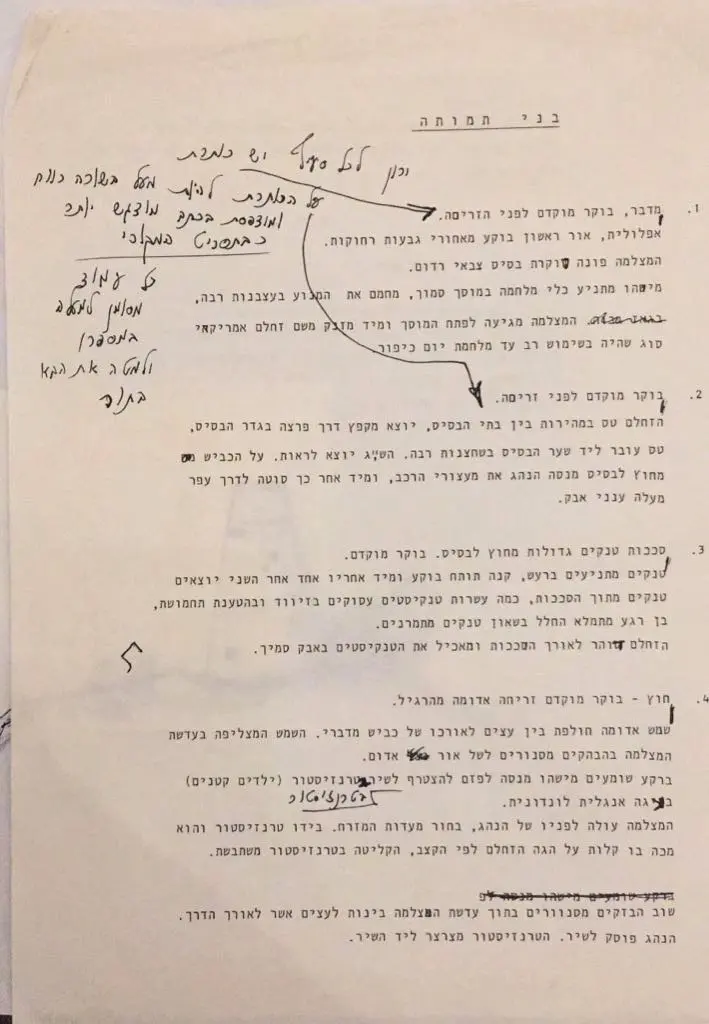 בני תמותה
ורון לכל סעיף יש כותרת
על הכותרת להיות מעל השורה כולה
ומודפסת בכתב מודגש יותר
כבתסריט המקורי
כל עמוד
מסומן למעלה
במספרו
ולמטה את הבא
בתור
1. מדבר, בוקר מוקדם לפני הזריחה.
אפלולית, אור ראשון בוקע מאחורי גבעות רחוקות.
המצלמה פונה סוקרת בסיס צבאי רדום.
מישהו מתניע כלי מלחמה במוסך סמוך, מחמם את המנוע בעצבנות רבה,
המצלמה מגיעה לפתח המוסך ומיד מזנק משם זחלם אמריקאי
סוג שהיה בשימוש רב עד מלחמת יום כיפור
2. בוקר מוקדם לפני זריחה.
הזחלם טס במהירות בין בתי הבסיס, יוצא מקפץ דרך פרצה בגדר הבסיס,
טס עובר ליד שער הבסיס בשחצנות רבה. הש"ג יוצא לראות. על הכביש
מחוץ לבסיס מנסה הנהג את מעצורי הרכב, ומיד אחר כך סוטה לדרך עפר
מעלה ענני אבק.
3. סככות טנקים גדולות מחוץ לבסיס. בוקר מוקדם.
טנקים מתניעים ברעש, קנה תותח בוקע ומיד אחריו אחד אחר השני יוצאים
טנקים מתוך הסככות, כמה עשרות טנקיסטים עסוקים בזיווד ובהטענת תחמושת,
בן רגע מתמלא החלל בשאון טנקים מתמרנים.
הזחלם דוהר לאורך הסככות ומאכיל את הטנקיסטים באבק סמיך.
4. חוץ - בוקר מוקדם זריחה אדומה מהרגיל.
שמש אדומה חולפת בין עצים לאורכו של כביש מדברי. השמש המצליפה בעדשת
המצלמה בהבהקים מסנוורים לשל אור אדום.
ברקע שומעים מישהו מנסה לפזם להצטרף לשיר בטרנזיסטור (ילדים קטנים)
בטרנזיסטור
אנגלית לונדונית.
המצלמה עולה לפניו של הנהג, בחור מעדות המזרח. בידו טרנזיסטור והוא
מכה בו קלות על הגה הזחלם לפי הקצב, הקליטה בטרנזיסטור משתבשת.
ברקע שומעים מישהו מנסה לפ
שוב הבזקים מסנוורים בתוך עדשת המצלמה בינות לעצים אשר לאורך הדרך.
הנהג פוסק לשיר. הטרנזיסטור מצרצר ליד השיר.